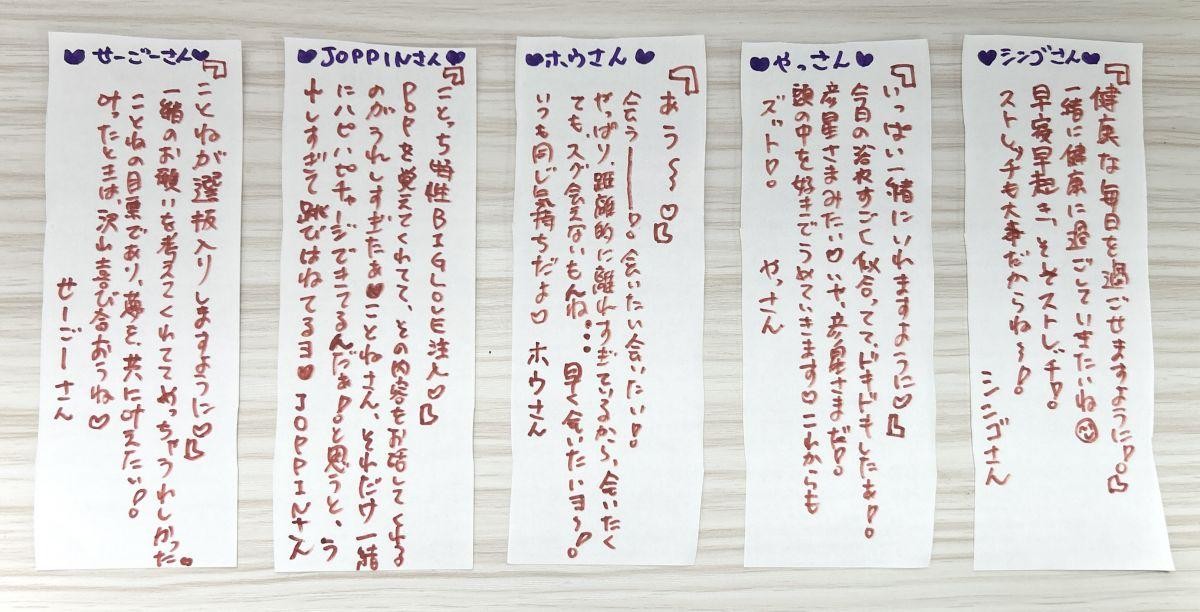 ♥シンゴさん♥
『健康な毎日を過ごせますように!。』
一緒に健康に過ごしていきたいね☺
早寝早起き、そしてストレッチ!。
ストレッチも大事だからね〜!。
シンゴさん
♥やっさん♥
『いっぱい一緒にいれますように♡』
今日の浴衣すごく似合ってて、ドキドキしたぁ!。
彦星さまみたい♡いや、彦星さまだ!。
頭の中を好きでうめていきます♡これからも
ズット!。
やっさん
♥ホウさん♥
『あう〜〜♡』
会う――!。会いたい会いたい!。
やっぱり、距離的に離れすぎているから、会いたく
ても、スグ会えないもんね…早く会いたいヨ〜!。
いつも同じ気持ちだよ♡ ホウさん
♥JOPPINさん♥
『ことっち特性BIGLOVE注入♡』
POPを覚えてくれてて、その内容をお話してくれる
のがうれしすぎたぁ♥ことねさん、それだけ一緒
にハピハピチャージできてるんだぁ!。と思うと、う
れしすぎて跳びはねてるヨ♥ JOPPINさん
♥せーごーさん♥
『ことねが選抜入りしますように♡』
一緒のお願いを考えてくれててめっちゃうれしかった。
ことねの目標であり、夢を、共に叶えたい!。
叶ったときは、沢山喜び合おうね♡
せーごーさん